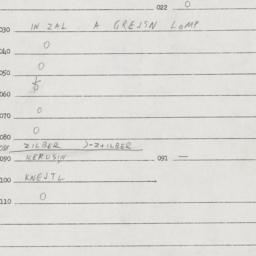 022 0
030 IN ZAL A GREJSN LOMP
040 0
050 0
060
070 0
080 0
081 ZILBER )-ZILBER
090 KEROSIN 091 —
100 KNEJTL
110 0